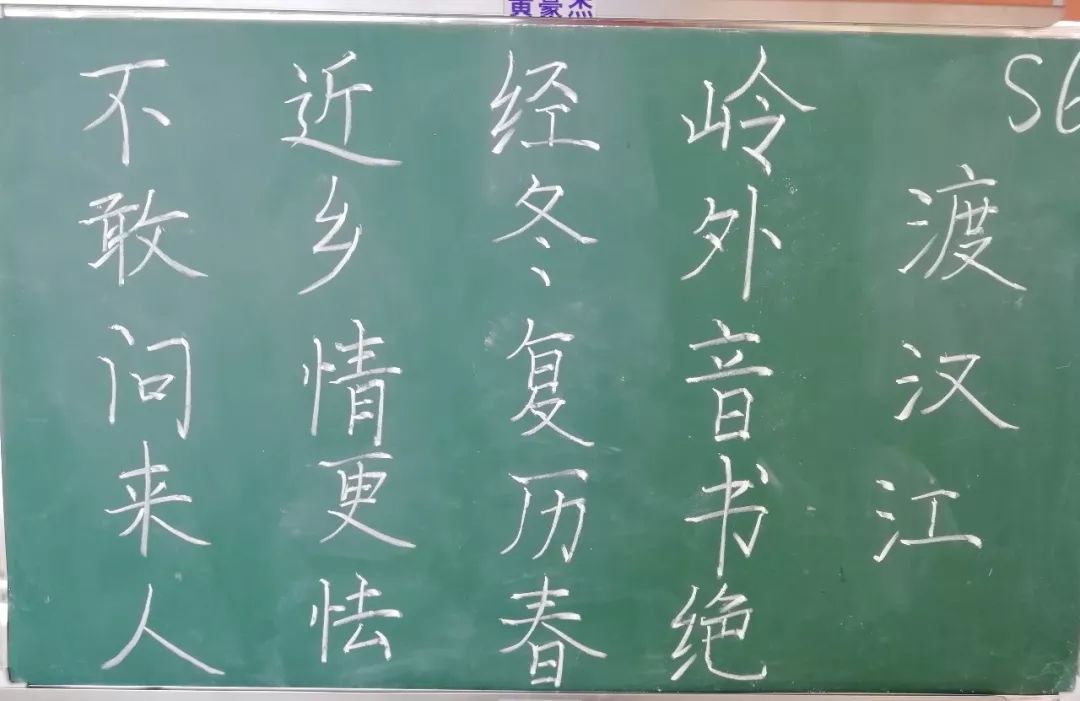 黄豪杰
渡汉江
岭外音书绝
经冬复历春
近乡情更怯
不敢问来人